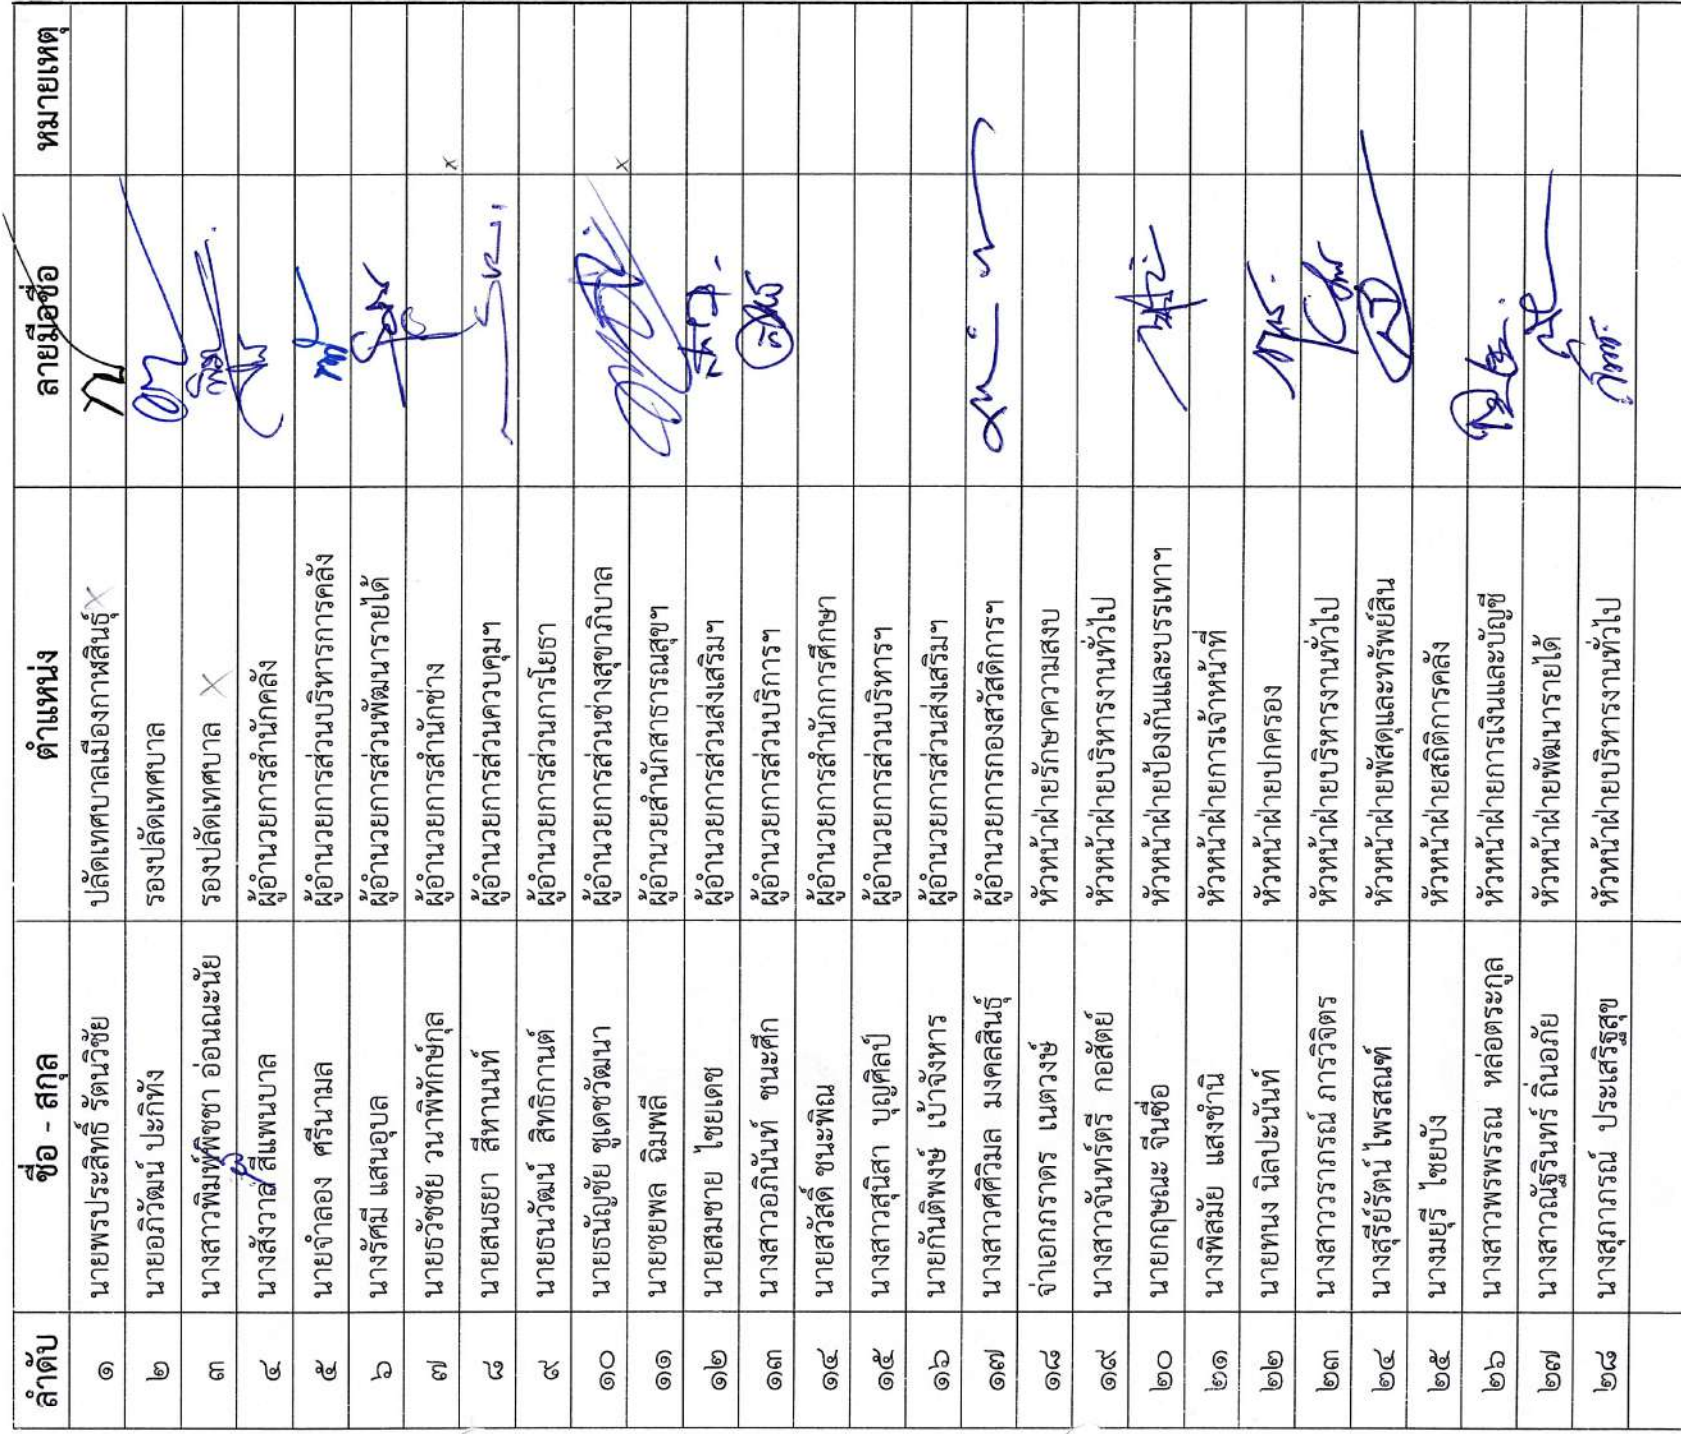 ลำดับ ชื่อ - สกุล ตำแหน่ง ลายมือชื่อ หมายเหตุ
๑ นายพรประสิทธิ์ รัตนวิชัย ปลัดเทศบาลเมืองกาฬสินธุ์ x
๒ นายอภิวัฒน์ ปะกิทัง รองปลัดเทศบาล
๓ นางสาวพิมพ์พิชชา อ่อนณะนัย รองปลัดเทศบาล x
๔ นางสังวาล สีแพนบาล ผู้อำนวยการสำนักคลัง
๕ นายจำลอง ศรีนามล ผู้อำนวยการส่วนบริหารการคลัง
๖ นางรัศมี แสนอุบล ผู้อำนวยการส่วนพัฒนารายได้
๗ นายธวัชชัย วนาพิทักษ์กุล ผู้อำนวยการสำนักช่าง x
๘ นายสนธยา สีหานนท์ ผู้อำนวยการส่วนควบคุมฯ
๙ นายธนวัฒน์ สิทธิกานต์ ผู้อำนวยการส่วนการโยธา
๑๐ นายธนัญชัย ชูเดชวัฒนา ผู้อำนวยการส่วนช่างสุขาภิบาล x
๑๑ นายชยพล ฉิมพลี ผู้อำนวยสำนักสาธารณสุขฯ
๑๒ นายสมชาย ไชยเดช ผู้อำนวยการส่วนส่งเสริมฯ
๑๓ นางสาวอภินันท์ ชนะศึก ผู้อำนวยการส่วนบริการฯ
๑๔ นายสวัสดิ์ ชนะพิณ ผู้อำนวยการสำนักการศึกษา
๑๕ นางสาวสุนิสา บุญศิลป์ ผู้อำนวยการส่วนบริหารฯ
๑๖ นายกันติพงษ์ เบ้าจังหาร ผู้อำนวยการส่วนส่งเสริมฯ
๑๗ นางสาวศศิวิมล มงคลสินธุ์ ผู้อำนวยการกองสวัสดิการฯ
๑๘ จ่าเอกกราดร เนตวงษ์ หัวหน้าฝ่ายรักษาความสงบ
๑๙ นางสาวจันทร์ตรี กอสัตย์ หัวหน้าฝ่ายบริหารงานทั่วไป
๒๐ นายกฤษณะ จีนซื่อ หัวหน้าฝ่ายป้องกันและบรรเทาฯ
๒๑ นางพิสมัย แสงชำนิ หัวหน้าฝ่ายการเจ้าหน้าที่
๒๒ นายทนง นิลปะนันท์ หัวหน้าฝ่ายปกครอง
๒๓ นางสาววราภรณ์ ภารวิจิตร หัวหน้าฝ่ายบริหารงานทั่วไป
๒๔ นางสุรีย์รัตน์ ไพรสณฑ์ หัวหน้าฝ่ายพัสดุและทรัพย์สิน
๒๕ นางมยุรี ไชยบัง หัวหน้าฝ่ายสถิติการคลัง
๒๖ นางสาวพรพรรณ หล่อตระกูล หัวหน้าฝ่ายการเงินและบัญชี
๒๗ นางสาวณัฐรินทร์ ถิ่นอภัย หัวหน้าฝ่ายพัฒนารายได้
๒๘ นางสุภาภรณ์ ประเสริฐสุข หัวหน้าฝ่ายบริหารงานทั่วไป